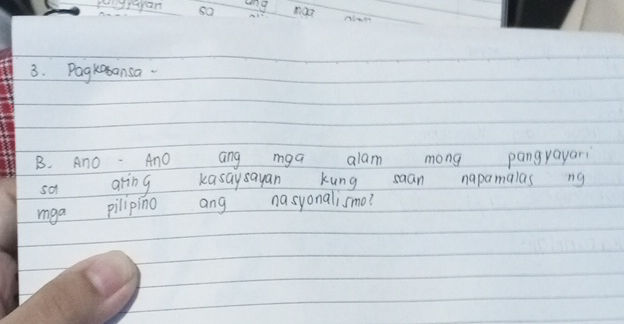 sa ang mga
3. Pagkabansa -
B. Ano - Ano ang mga alam mong pangyayari
sa ating kasaysayan kung saan napamalas ng
mga pilipino ang nasyonalismo?